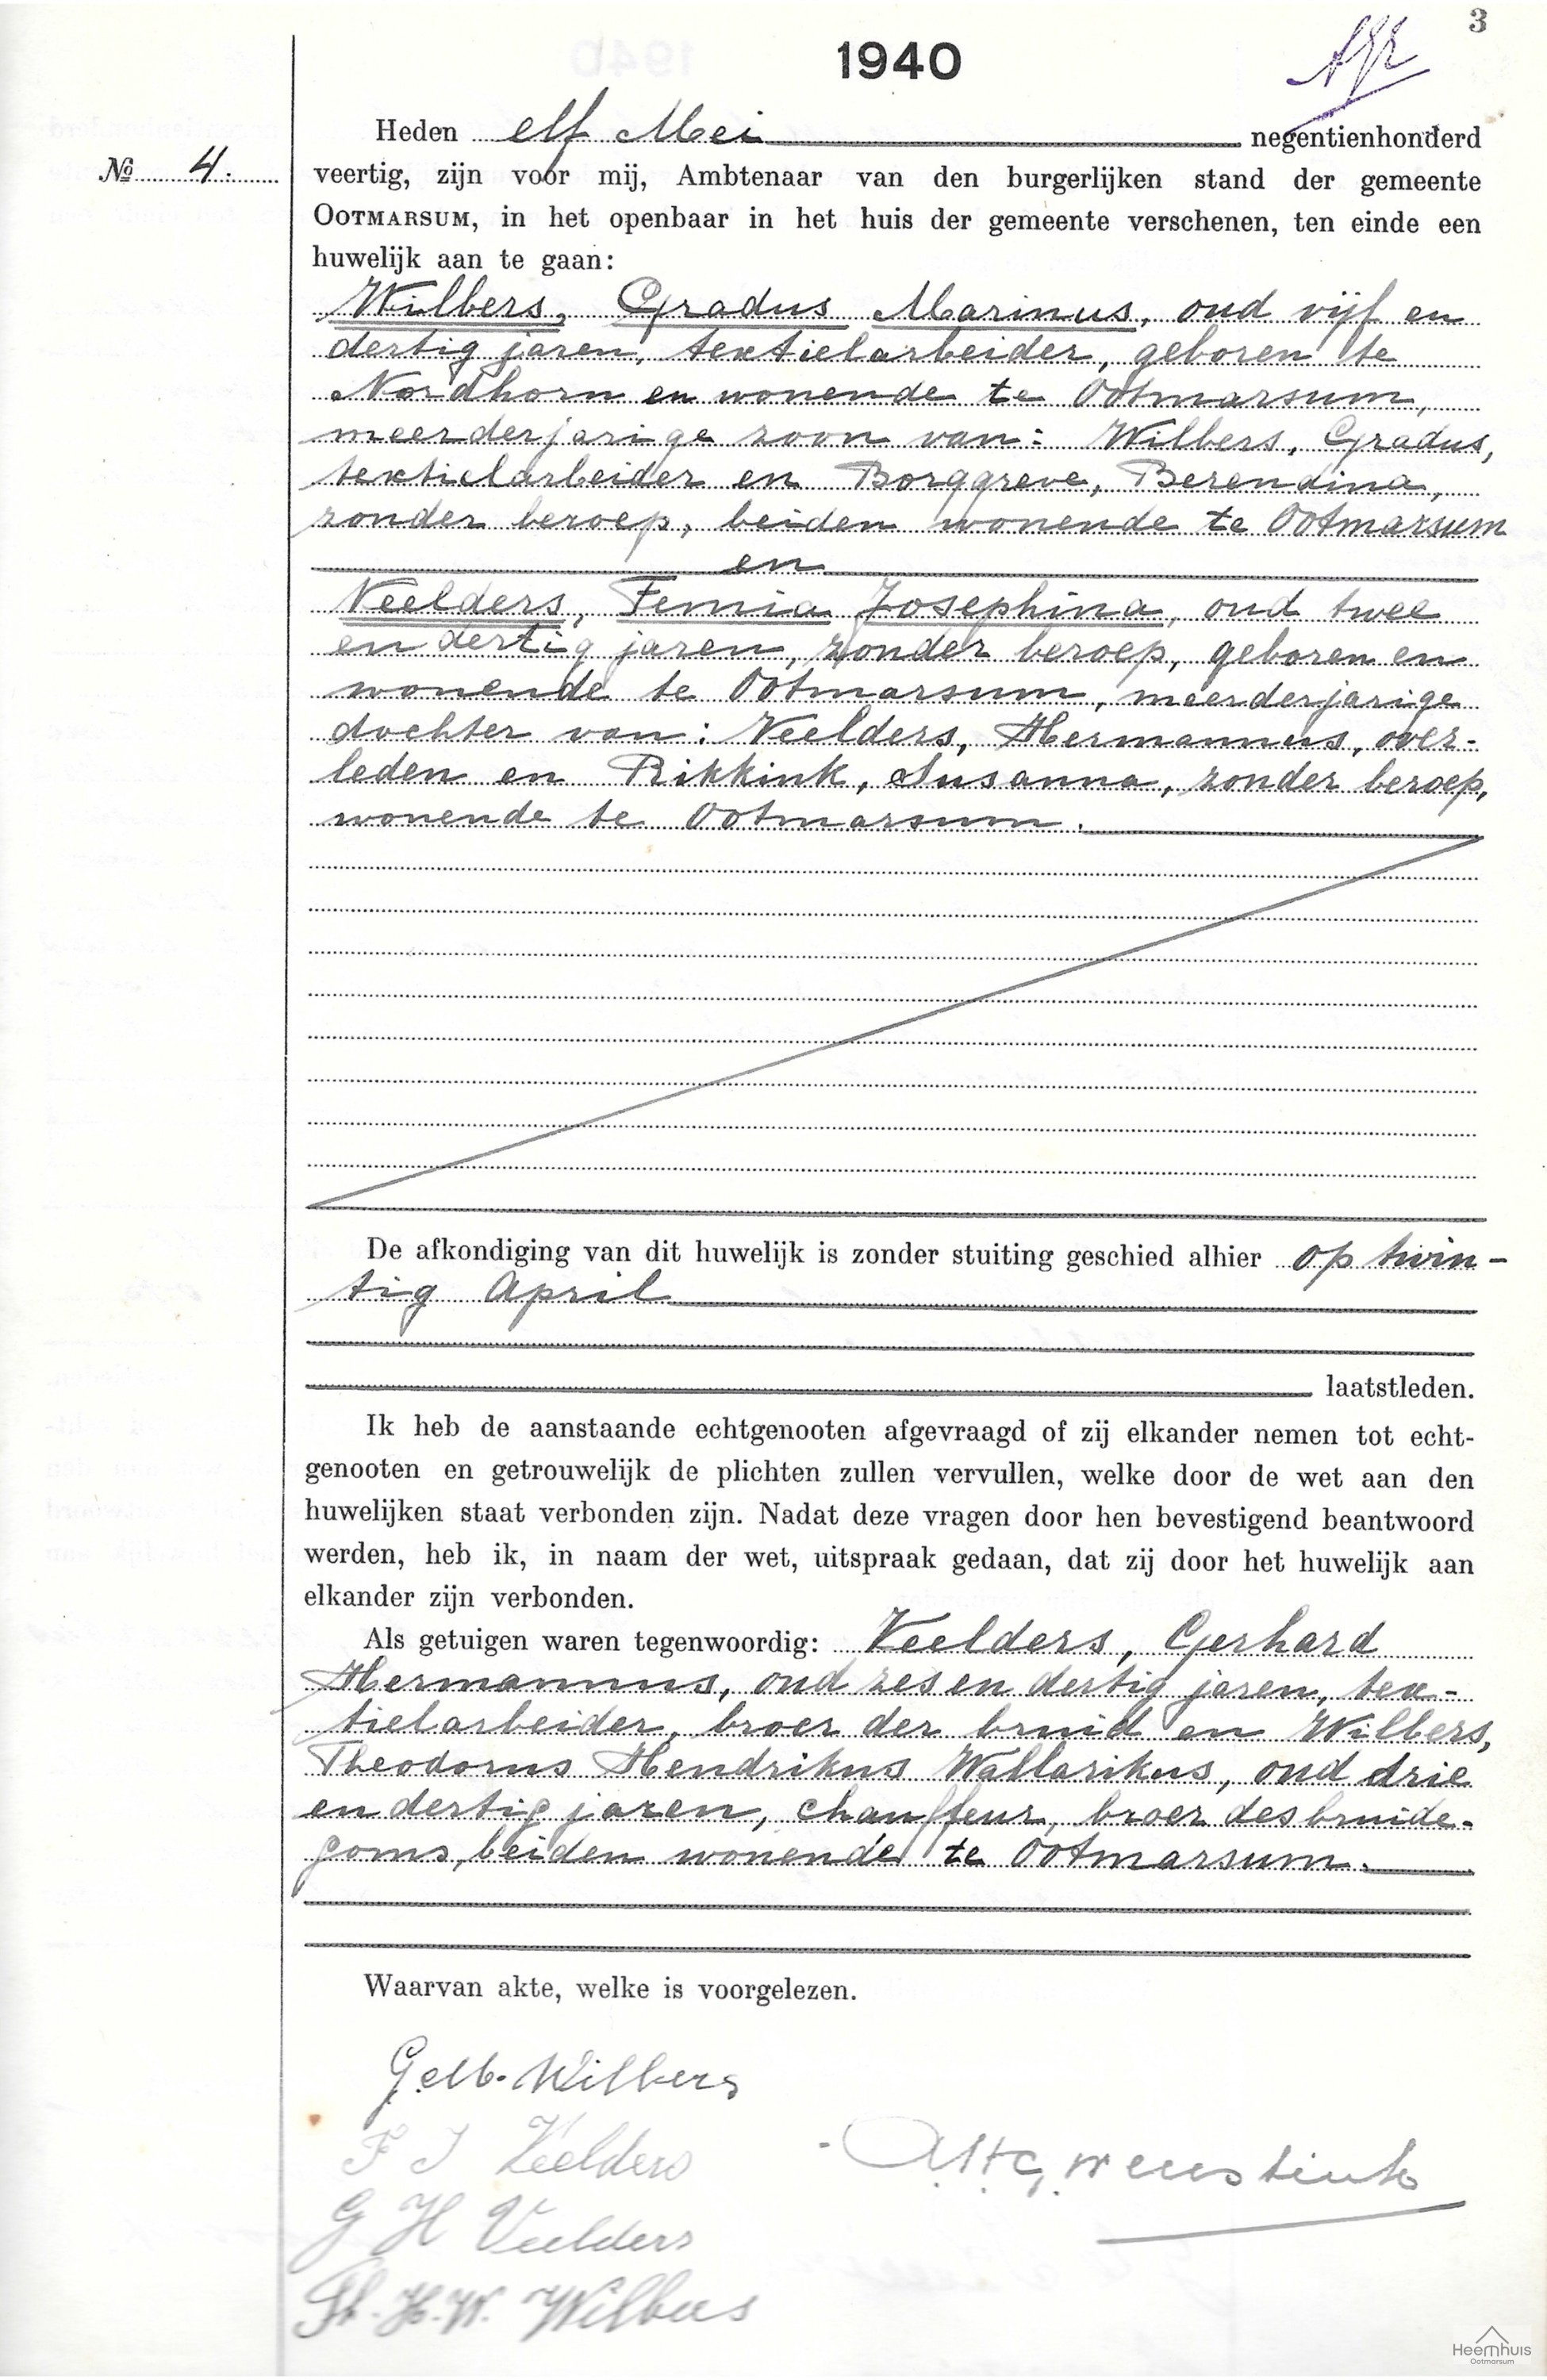 3
1940
Heden elf Mei negentienhonderd
No 4.
veertig, zijn voor mij, Ambtenaar van den burgerlijken stand der gemeente
OOTMARSUM, in het openbaar in het huis der gemeente verschenen, ten einde een
huwelijk aan te gaan:
Wilbers, Gradus Marinus, oud vijf en
dertig jaren, textielarbeider, geboren te
Nordhorn en wonende te Ootmarsum,
meerderjarige zoon van: Wilbers, Gradus,
textielarbeider en Borggreve, Berendina,
zonder beroep, beiden wonende te Ootmarsum
en
Veelders, Femia Josephina, oud twee
en dertig jaren, zonder beroep, geboren en
wonende te Ootmarsum, meerderjarige
dochter van: Veelders, Hermannus, over-
leden en Rikkink, Susanna, zonder beroep,
wonende te Ootmarsum.
De afkondiging van dit huwelijk is zonder stuiting geschied alhier op twin-
tig April
laatstleden.
Ik heb de aanstaande echtgenooten afgevraagd of zij elkander nemen tot echt-
genooten en getrouwelijk de plichten zullen vervullen, welke door de wet aan den
huwelijken staat verbonden zijn. Nadat deze vragen door hen bevestigend beantwoord
werden, heb ik, in naam der wet, uitspraak gedaan, dat zij door het huwelijk aan
elkander zijn verbonden.
Als getuigen waren tegenwoordig: Veelders, Gerhard
Hermannus, oud zes en dertig jaren, tex-
tielarbeider, broer der bruid en Wilbers,
Theodorus Hendrikus Wallarikus, oud drie
en dertig jaren, chauffeur, broer des bruide-
goms, beiden wonende te Ootmarsum.
Waarvan akte, welke is voorgelezen.
G.M. Wilbers
F J Veelders
G H Veelders
Th. H. W. Wilbers
Heemhuis
Ootmarsum